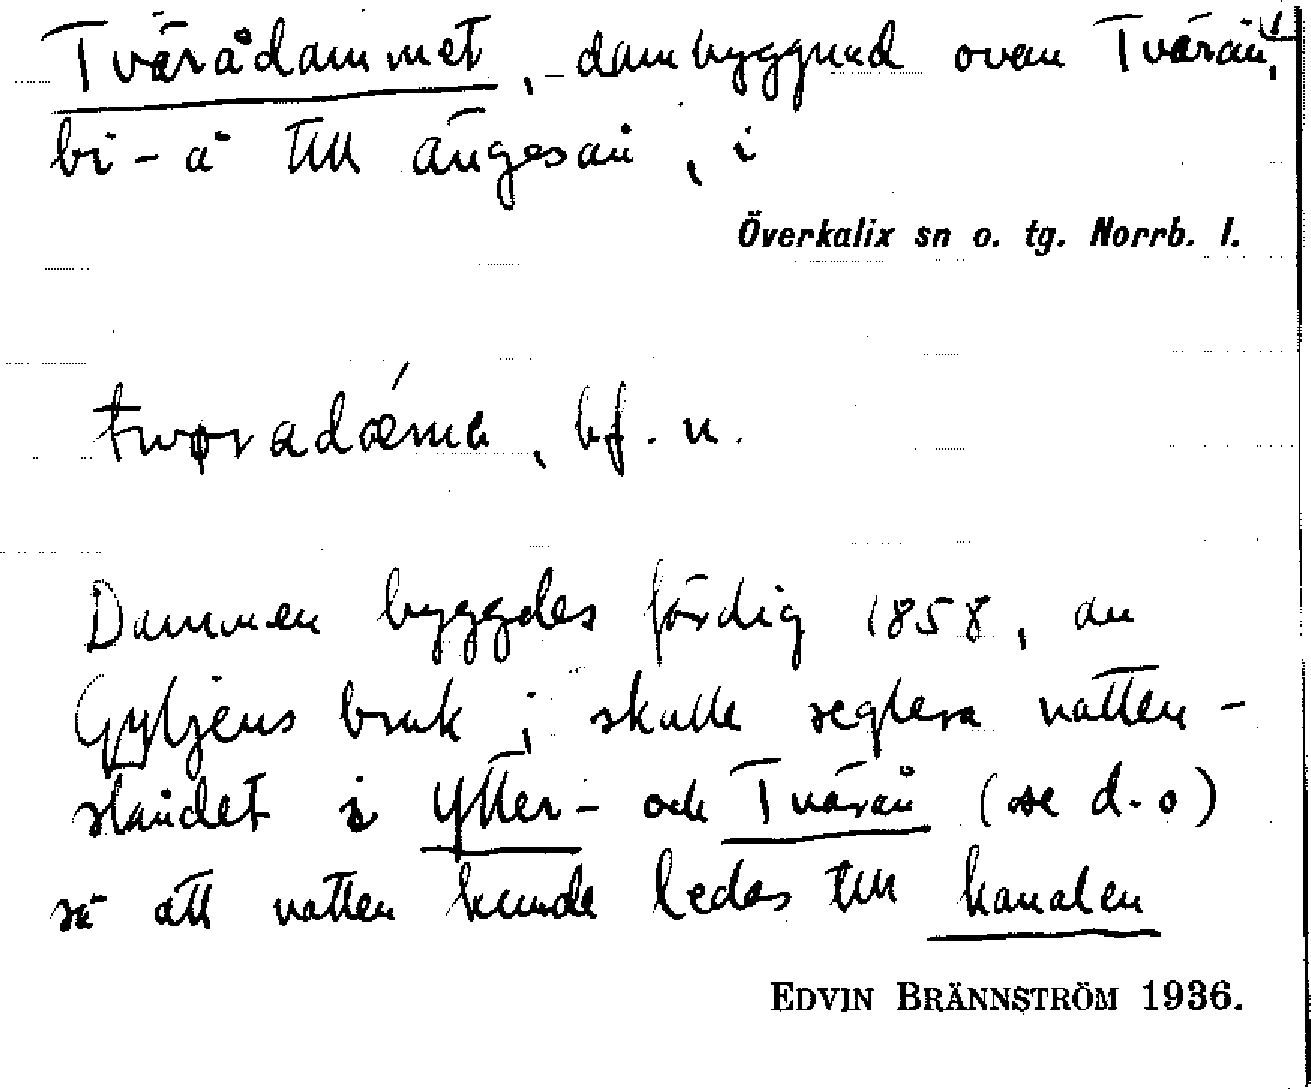 Tvärådammet, dambyggnad ovan Tvärån,
bi-å till Ängesån, i
Överkalix sn o. tg. Norrb. l.
bf. n.
Dammen byggdes färdig 1858, av
Gyljens bruk; skulle reglera vatten-
ståndet i Ytter- och Tvärån (se d. o)
så att vatten kunde ledas till kanalen
EDVIN BRÄNNSTRÖM 1936.